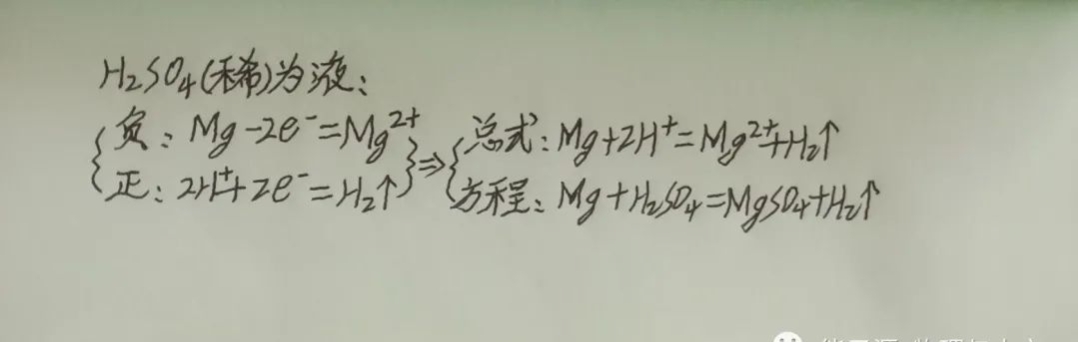 H₂SO₄(稀)为液:
{负: Mg-2e⁻=Mg²⁺
正: 2H⁺+2e⁻=H₂↑}⇒{总式: Mg+2H⁺=Mg²⁺+H₂↑
方程: Mg+H₂SO₄=MgSO₄+H₂↑